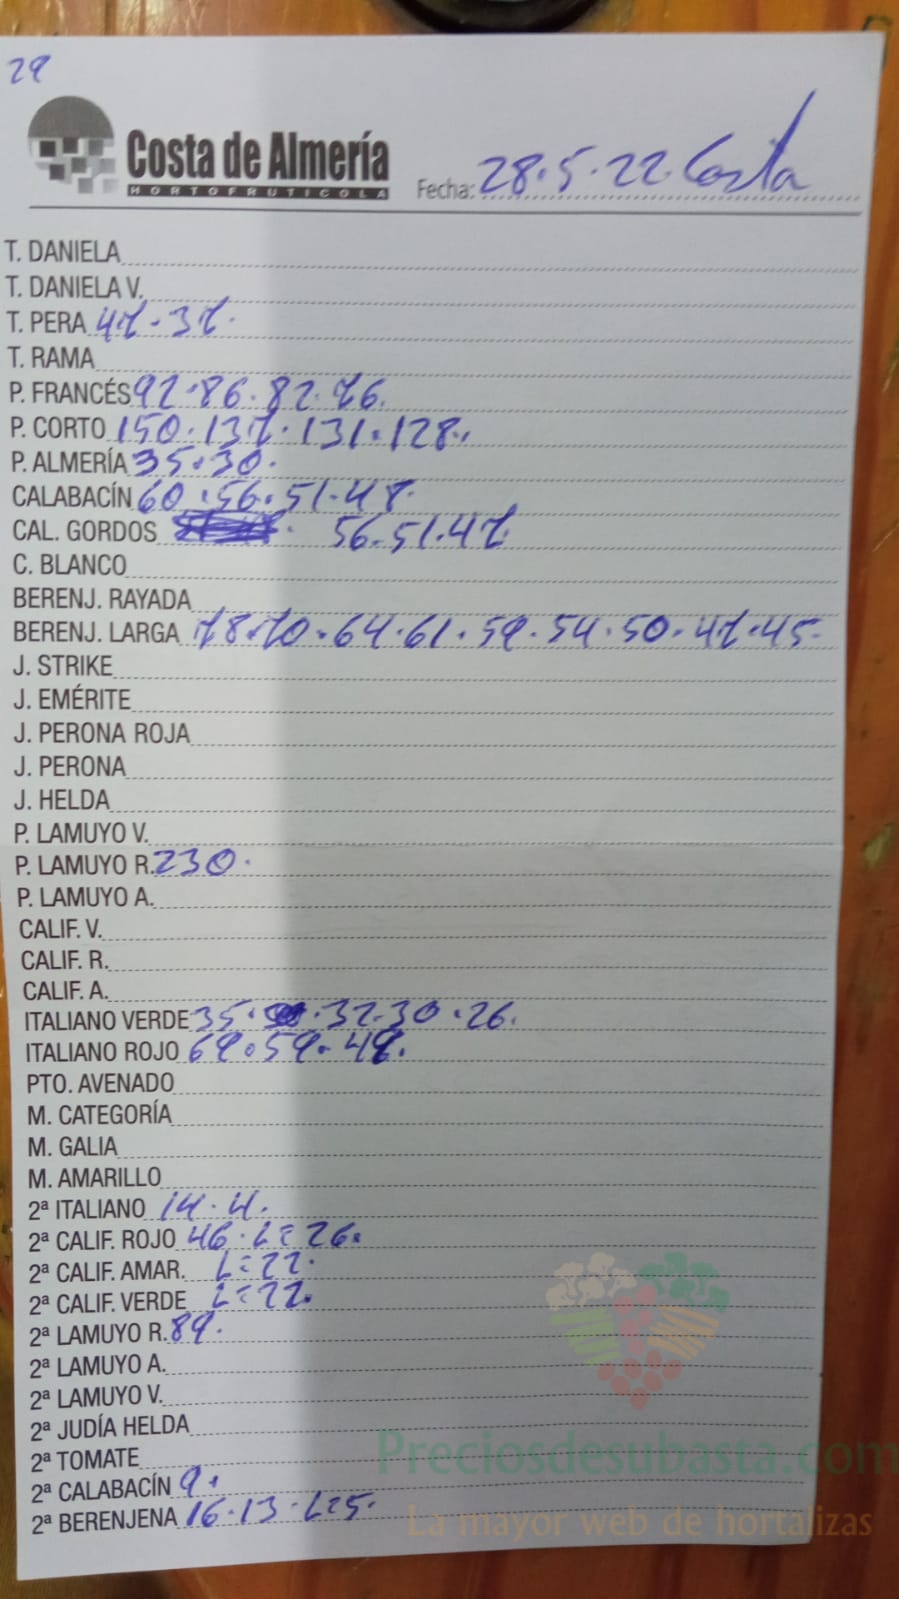 29
Costa de Almería
HORTOFRUTICOLA
Fecha: 28.5.22. Costa
T. DANIELA
T. DANIELA V.
T. PERA 47.37.
T. RAMA
P. FRANCÉS 92.86.82.76.
P. CORTO 150.137.131.128.
P. ALMERÍA 35.30.
CALABACÍN 60.56.51.48.
CAL. GORDOS 56.51.47.
C. BLANCO
BERENJ. RAYADA
BERENJ. LARGA 78.70.64.61.59.54.50.47.45.
J. STRIKE
J. EMÉRITE
J. PERONA ROJA
J. PERONA
J. HELDA
P. LAMUYO V.
P. LAMUYO R. 230.
P. LAMUYO A.
CALIF. V.
CALIF. R.
CALIF. A.
ITALIANO VERDE 35.32.30.26.
ITALIANO ROJO 69.59.49.
PTO. AVENADO
M. CATEGORÍA
M. GALIA
M. AMARILLO
2ª ITALIANO 14.4.
2ª CALIF. ROJO 46.L=26.
2ª CALIF. AMAR. L=22.
2ª CALIF. VERDE L=22.
2ª LAMUYO R. 89.
2ª LAMUYO A.
2ª LAMUYO V.
2ª JUDÍA HELDA
2ª TOMATE
2ª CALABACÍN 9.
2ª BERENJENA 16.13.L=5.
Preciosdesubasta.com
La mayor web de hortalizas